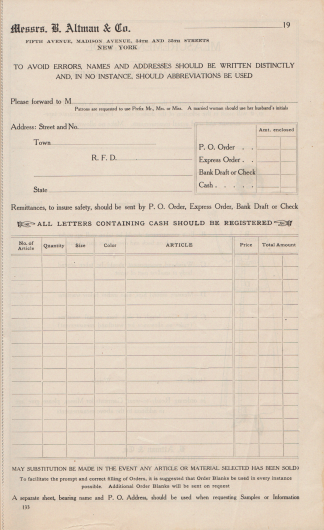 Messrs. B. Altman & Co. 19
FIFTH AVENUE, MADISON AVENUE, 34TH AND 35TH STREETS
NEW YORK
TO AVOID ERRORS, NAMES AND ADDRESSES SHOULD BE WRITTEN DISTINCTLY
AND, IN NO INSTANCE, SHOULD ABBREVIATIONS BE USED
Please forward to M
Patrons are requested to use Prefix Mr., Mrs. or Miss. A married woman should use her husband's initials
Address: Street and No.
Town
R. F. D.
State
Amt. enclosed
P. O. Order . .
Express Order . .
Bank Draft or Check
Cash . . . . .
Remittances, to insure safety, should be sent by P. O. Order, Express Order, Bank Draft or Check
ALL LETTERS CONTAINING CASH SHOULD BE REGISTERED
No. of Article Quantity Size Color ARTICLE Price Total Amount
MAY SUBSTITUTION BE MADE IN THE EVENT ANY ARTICLE OR MATERIAL SELECTED HAS BEEN SOLD?
To facilitate the prompt and correct filling of Orders, it is suggested that Order Blanks be used in every instance
possible. Additional Order Blanks will be sent on request
A separate sheet, bearing name and P. O. Address, should be used when requesting Samples or Information
115